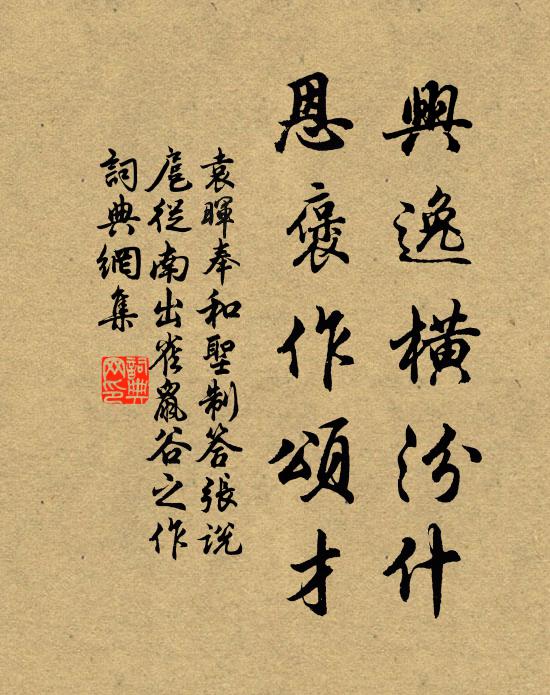 興逸橫汾什
恩褒作頌才
袁暉奉和聖制答張说
扈從南出雀鼠谷之作
詞典網集
詞典
网印